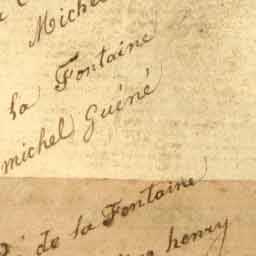 Michel
la Fontaine
michel Guéné
de la Fontaine
henry